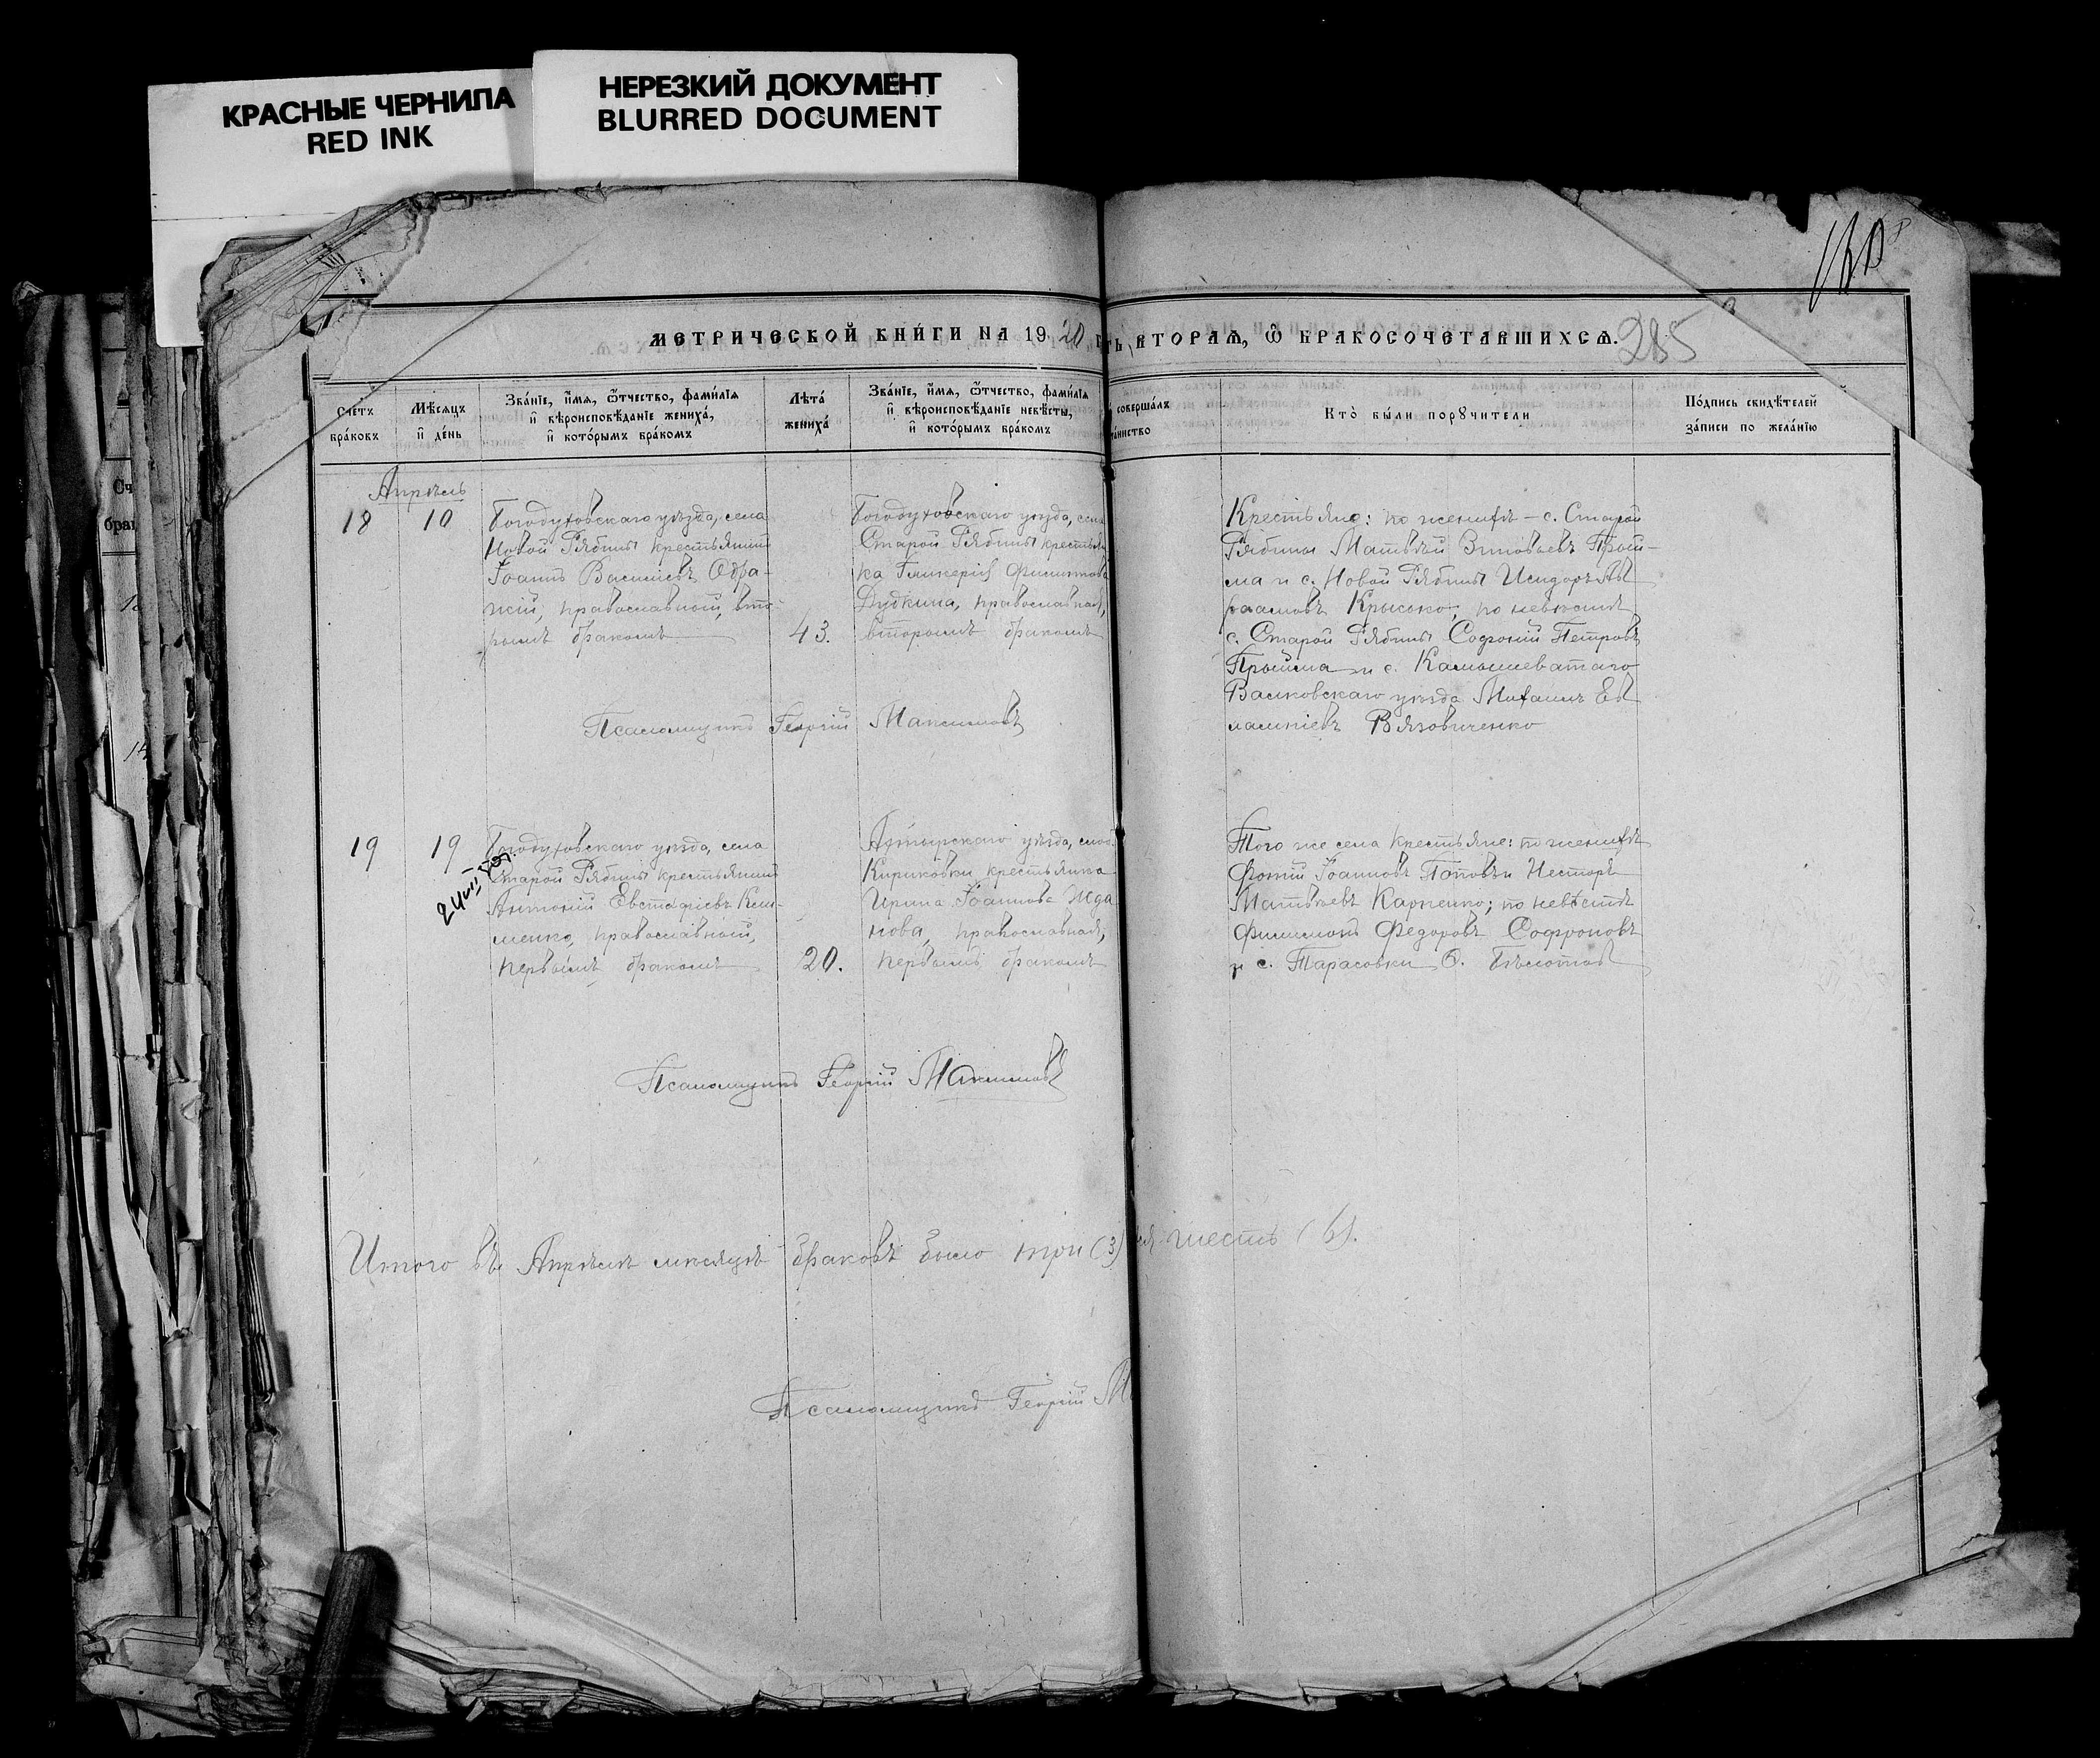 КРАСНЫЕ ЧЕРНИЛА
RED INK
НЕРЕЗКИЙ ДОКУМЕНТ
BLURRED DOCUMENT
285
МЕТРИЧЕСКОЙ КНИ́ГИ НА 1920 ВТОРАѦ, Ѿ БРАКОСОЧЕТАВШИХСѦ.
Счетъ бра́ковъ
Мѣ́сяцъ и҆ де́нь
Зва́нїе, и҆́мѧ, ѻ҆́тчество, фами́лїѧ
и҆ вѣроисповѣ́данїе жениха̀,
и҆ кото́рымъ бра́комъ
Лѣ́та жениха̀
Зва́нїе, и҆́мѧ, ѻ҆́тчество, фами́лїѧ
и҆ вѣроисповѣ́данїе невѣ́сты,
и҆ кото́рымъ бра́комъ
совершáлъ
Кто̀ бы́ли порꙋчители
По́дпись свидѣ́телей
за́писи по жела́нїю
Апрѣль
18
10
Богодуховскаго уѣзда, села
Новой Рябины крестьянинъ
Іоаннъ Васильевъ Одра-
жій, православный, вто-
рымъ бракомъ
43.
Богодуховскаго уѣзда, села
Старой Рябины крестьян
ка Гликерія Филиппова
Дудкина, православная,
вторымъ бракомъ
Крестьяне: по женихѣ – с. Старой
Рябины Матвѣй Зиновьевъ Прый-
ма и с. Новой Рябины Исидоръ Ав
раамовъ Крысько, по невѣстѣ
с. Старой Рябины Софроній Петровъ
Прыйма и с. Камышеватаго
Валковскаго уѣзда Михаилъ Ев
лампіевъ Вязовиченко
Псаломщикъ Георгій Максимовъ
19
19
Богодуховскаго уѣзда, села
Старой Рябины крестьянинъ
Антоній Евстафіевъ Кли-
менко, православный,
первымъ бракомъ
20.
Ахтырскаго уѣзда, слоб.
Кириковки крестьянка
Ирина Іоаннова Жда
нова, православная,
первымъ бракомъ
Того же села крестьяне: по женихѣ
Фотій Іоанновъ Поповъ и Несторъ
Матвѣевъ Карпенко; по невѣстѣ
Филимонъ Федоровъ Софроновъ
и с. Тарасовки Ѳ.
Псаломщикъ Георгій Максимовъ
Итого въ Апрѣлѣ мѣсяцѣ браковъ было три (3) шесть (6).
Псаломщикъ Георгій М